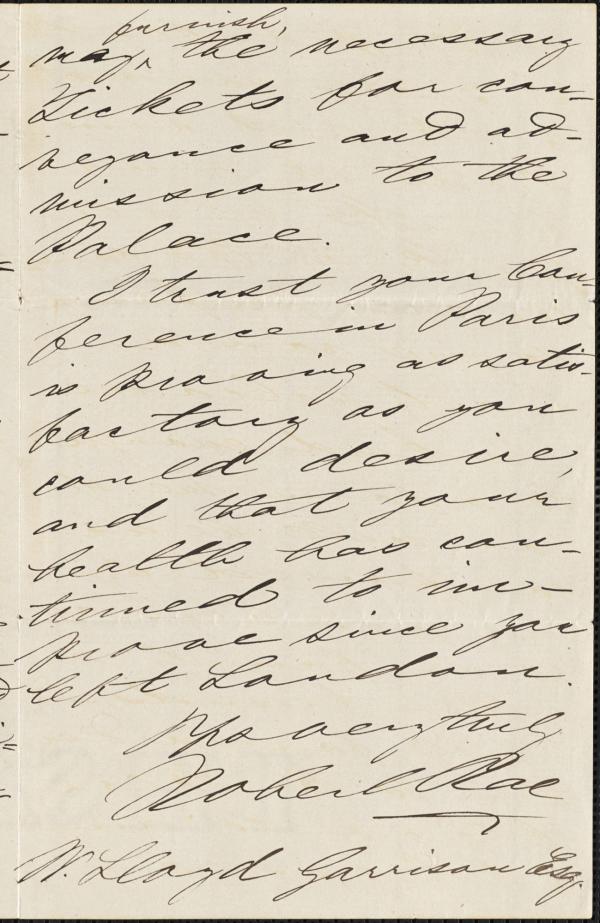 furnish,
may ^ the necessary
Tickets for con-
veyance and ad-
mission to the
Palace.
I trust your Con-
ference in Paris
is proving as satis-
factory as you
could desire,
and that your
health has con-
tinued to im-
prove since you
left London.
Yrs very truly
Robert Rae
W. Lloyd Garrison Esq.